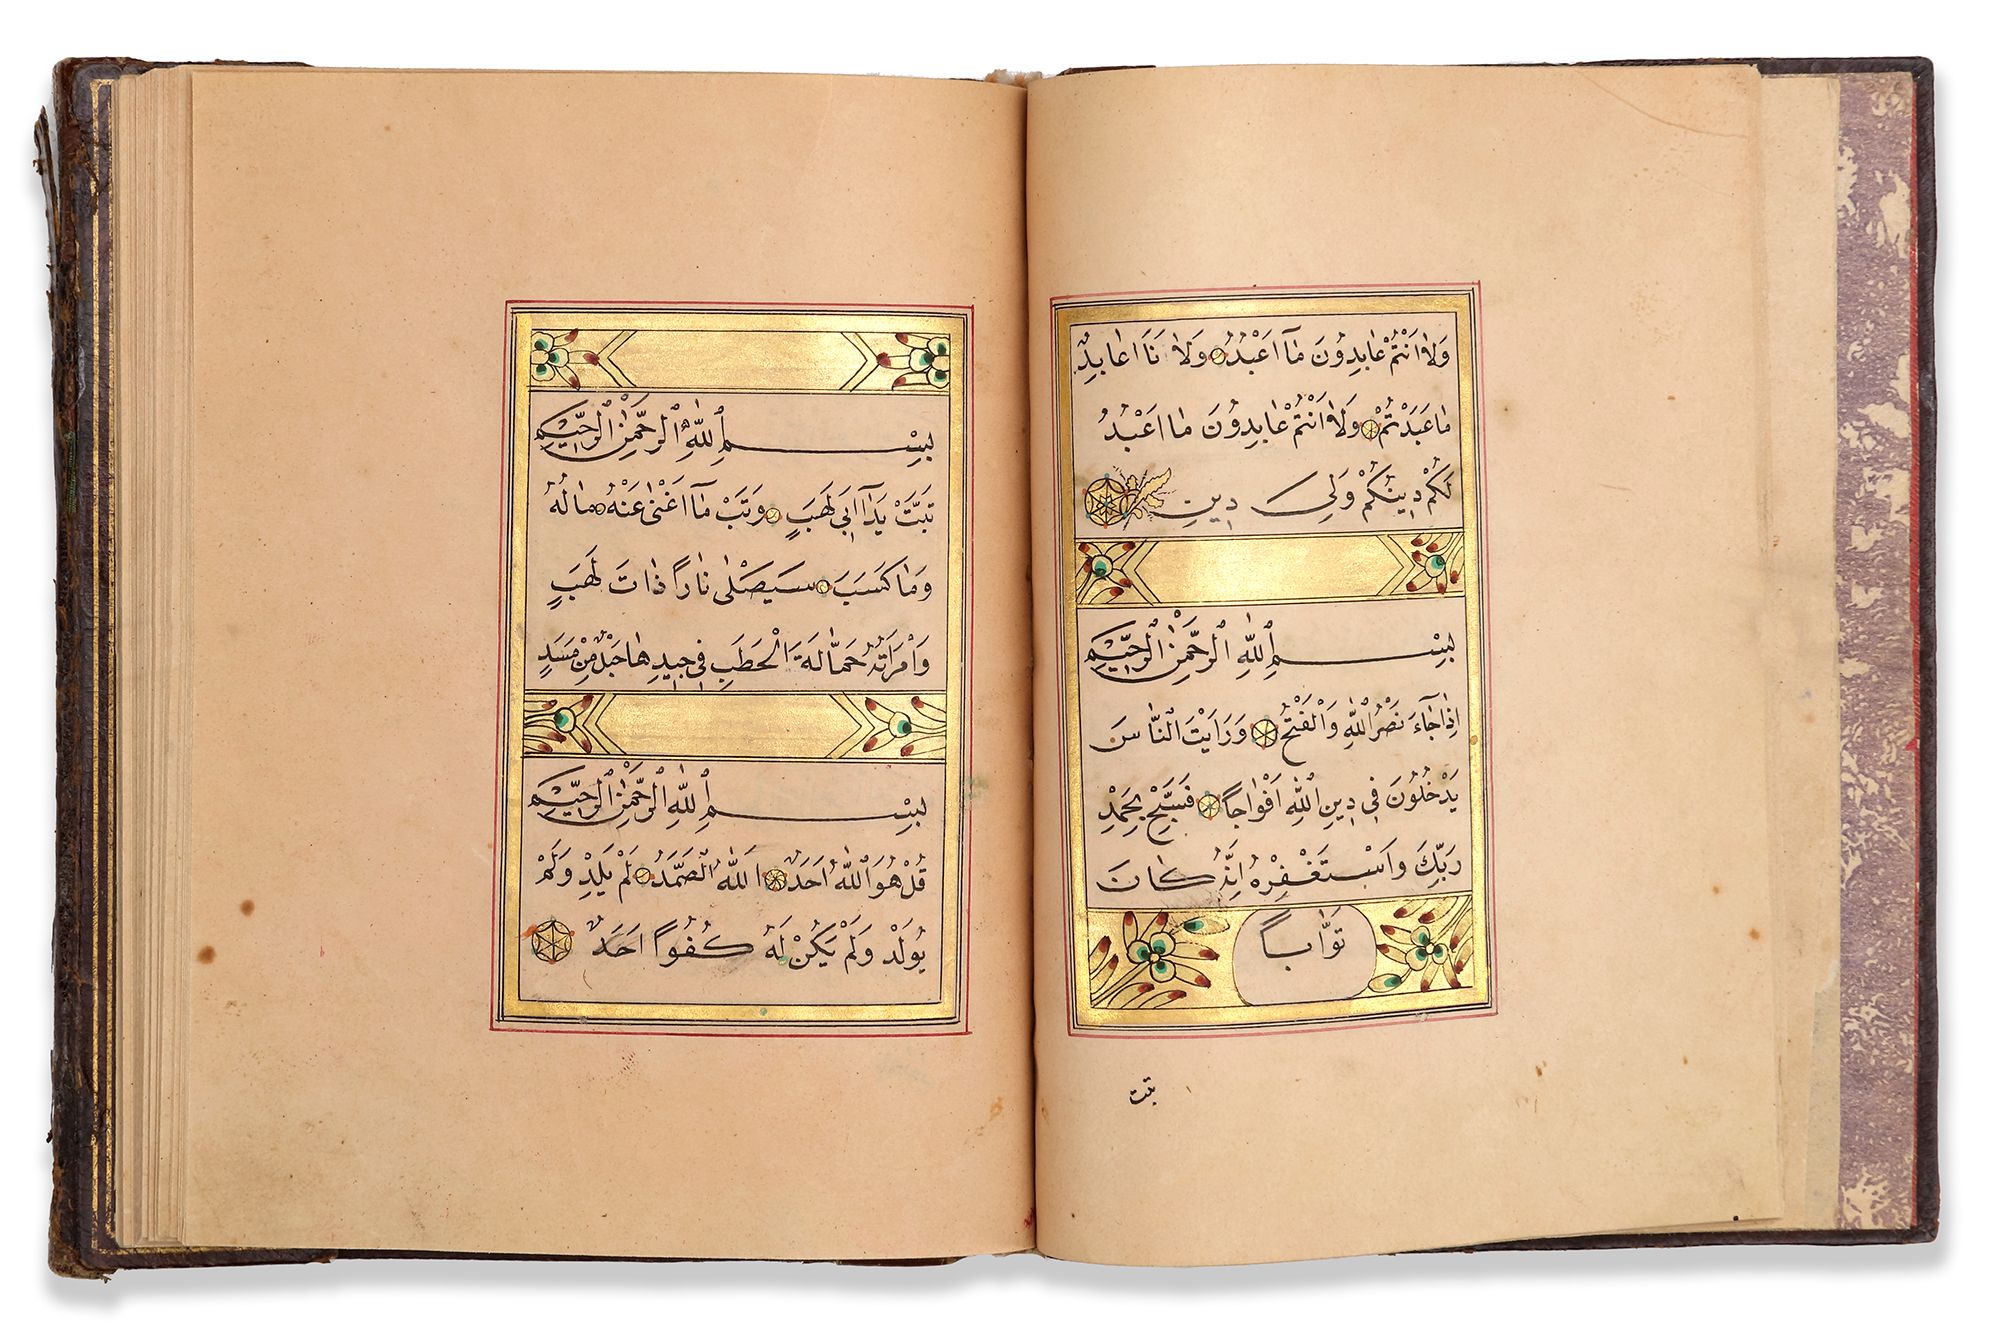 وَلَا اَنْتُمْ عَابِدُونَ مَٓا اَعْبُدُ وَلَا نَا۬ عَابِدٌ
مَا عَبَدْتُمْ وَلَا اَنْتُمْ عَابِدُونَ مَا اَعْبُدُ
لَكُمْ دِينُكُمْ وَلِيَ دِينِ
بِسْمِ اللّٰهِ الرَّحْمٰنِ الرَّحِيمِ
اِذَا جَٓاءَ نَصْرُ اللّٰهِ وَالْفَتْحُ وَرَاَيْتَ النَّاسَ
يَدْخُلُونَ فِي دِينِ اللّٰهِ اَفْوَاجاً فَسَبِّحْ بِحَمْدِ
رَبِّكَ وَاسْتَغْفِرْهُ اِنَّهُ كَانَ
تَوَّاباً
تبت
بِسْمِ اللّٰهِ الرَّحْمٰنِ الرَّحِيمِ
تَبَّتْ يَدَٓا اَبِي لَهَبٍ وَتَبَّ مَٓا اَغْنٰى عَنْهُ مَالُهُ
وَمَا كَسَبَ سَيَصْلٰى نَاراً ذَاتَ لَهَبٍ
وَامْرَاَتُهُ حَمَّالَةَ الْحَطَبِ فِي جِيدِهَا حَبْلٌ مِنْ مَسَدٍ
بِسْمِ اللّٰهِ الرَّحْمٰنِ الرَّحِيمِ
قُلْ هُوَ اللّٰهُ اَحَدٌ اَللّٰهُ الصَّمَدُ لَمْ يَلِدْ وَلَمْ
يُولَدْ وَلَمْ يَكُنْ لَهُ كُفُواً اَحَدٌ